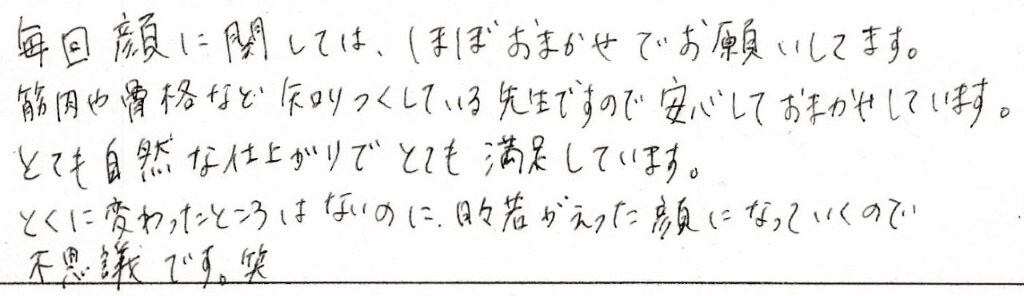 毎回顔に関しては、ほぼおまかせでお願いしてます。
筋肉や骨格など知りつくしている先生ですので安心しておまかせしています。
とても自然な仕上がりでとても満足しています。
とくに変わったところはないのに、日々若がえった顔になっていくので
不思議です。笑